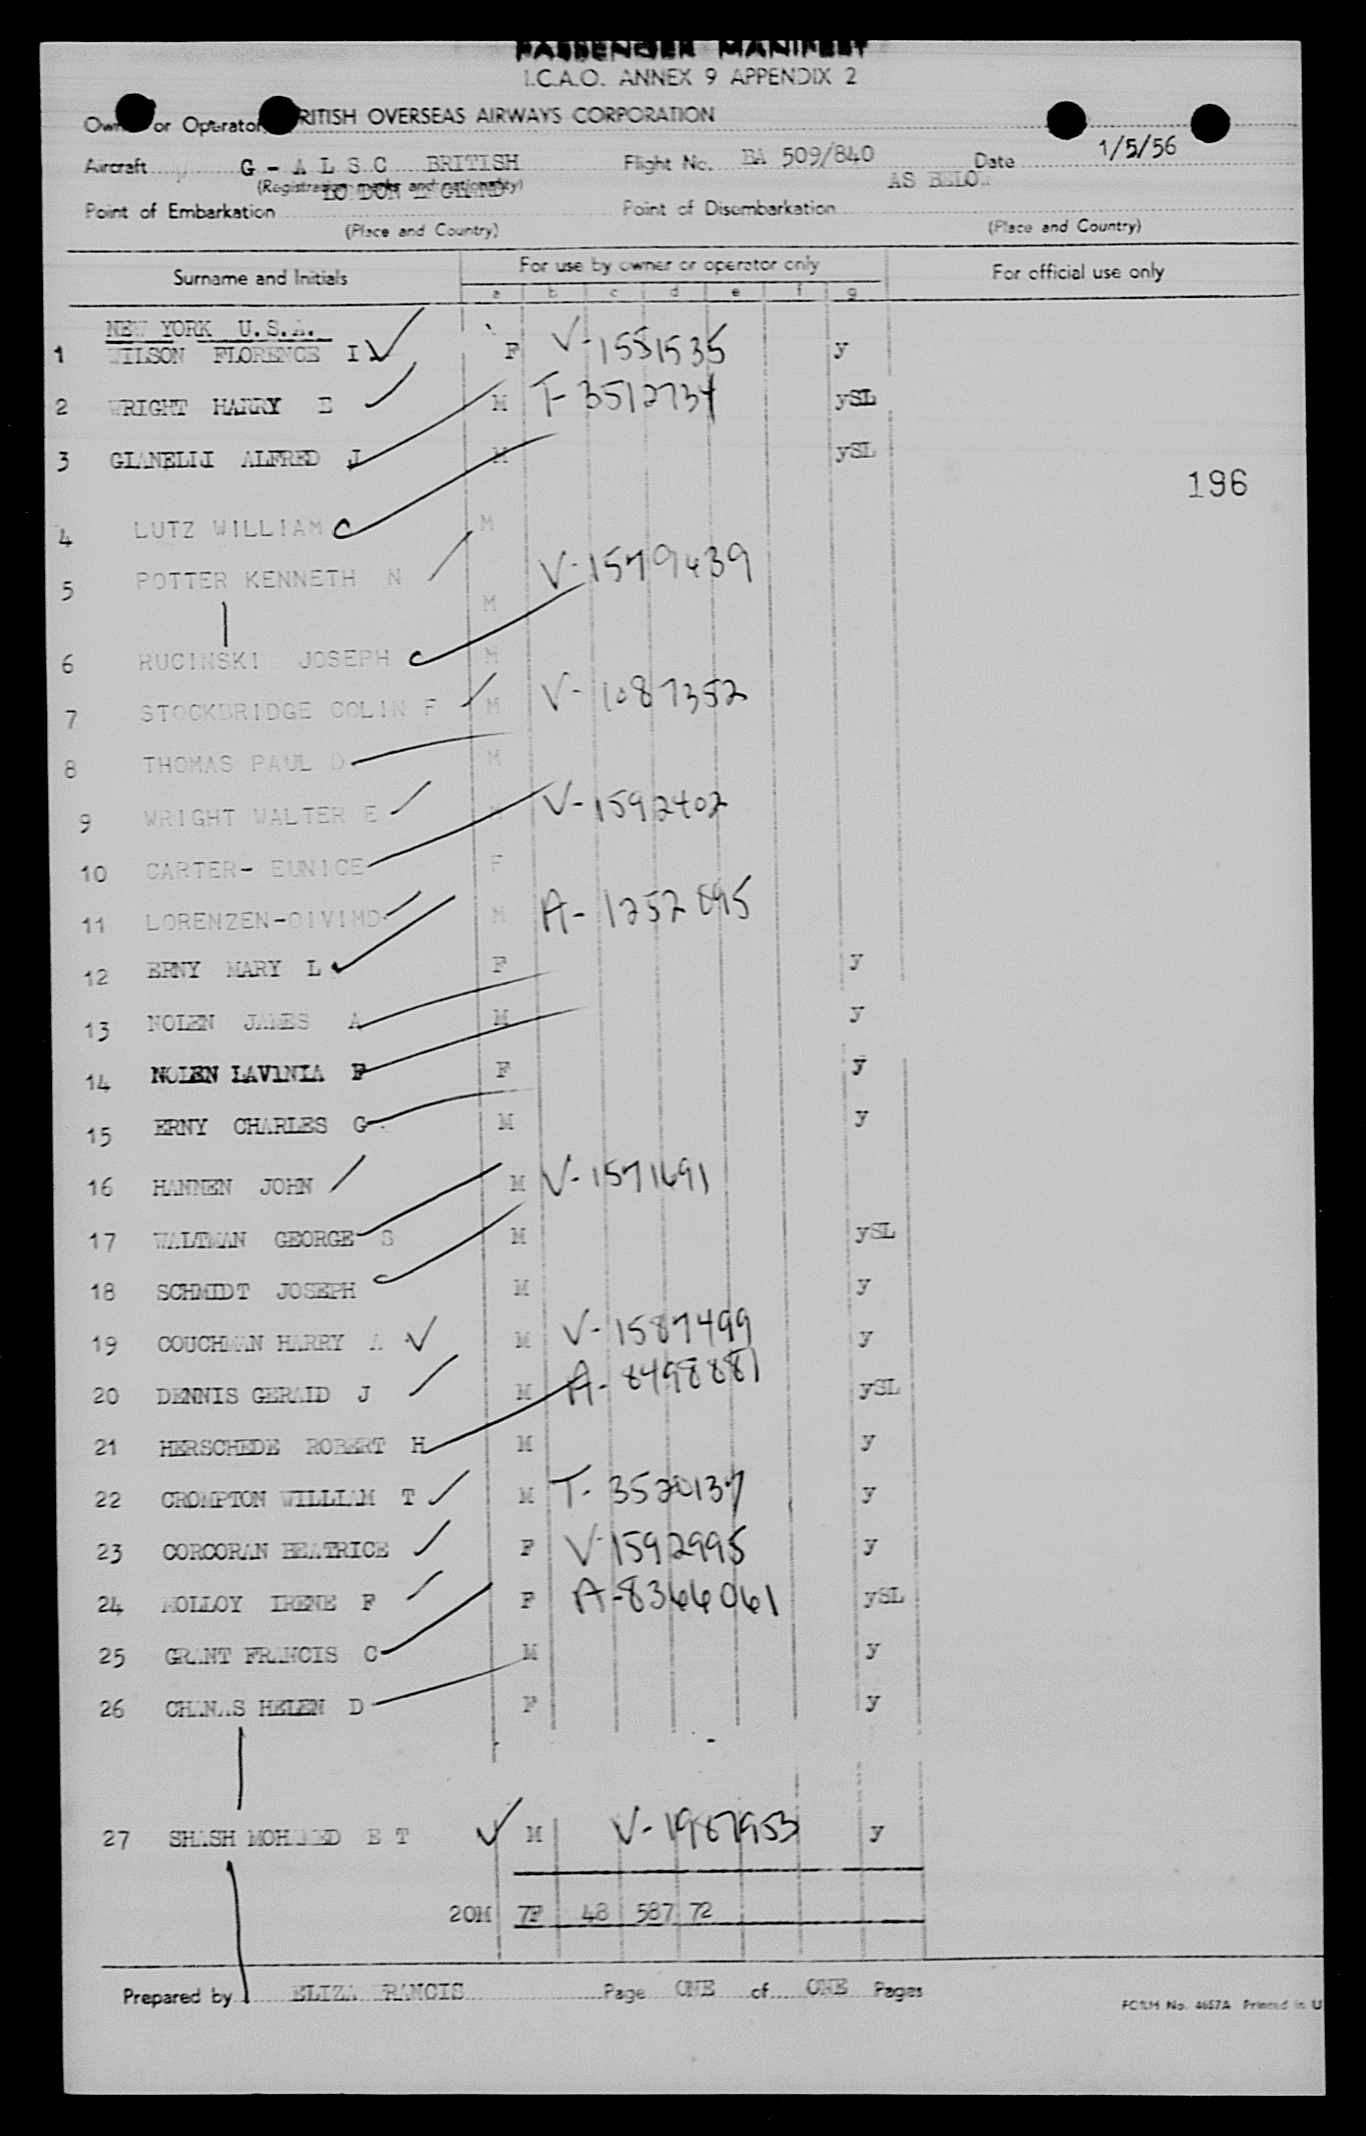 PASSENGER MANIFEST
I.C.A.O. ANNEX 9 APPENDIX 2
Owner or Operator BRITISH OVERSEAS AIRWAYS CORPORATION
Aircraft G - A L S C BRITISH Flight No. BA 509/840 Date 1/5/56
(Registration marks and nationality) AS BELOW
Point of Embarkation LONDON ENGLAND Point of Disembarkation
(Place and Country) (Place and Country)
Surname and Initials For use by owner or operator only For official use only
a b c d e f g
NEW YORK U.S.A.
1 WILSON FLORENCE I F V-1581535 y
2 WRIGHT HARRY E M T-3512734 ySL
3 GIANELLI ALFRED J M ySL
196
4 LUTZ WILLIAM M
5 POTTER KENNETH N M V-1579439
6 RUCINSKI JOSEPH M
7 STOCKBRIDGE COLIN F M V-1087352
8 THOMAS PAUL D M
9 WRIGHT WALTER E M V-1592402
10 CARTER- EUNICE F
11 LORENZEN-OIVIMD M A-1252895
12 ERNY MARY L F y
13 NOLEN JAMES A M y
14 NOLEN LAVINIA F F y
15 ERNY CHARLES G M y
16 HANNEN JOHN M V-1571691
17 WALTMAN GEORGE S M ySL
18 SCHMIDT JOSEPH M y
19 COUCHMAN HARRY A M V-1587499 y
20 DENNIS GERALD J M A-8498881 ySL
21 HERSCHEDE ROBERT H M y
22 CROMPTON WILLIAM T M T-3520137 y
23 CORCORAN BEATRICE F V-1592995 y
24 MOLLOY IRENE F F A-8366061 ySL
25 GRANT FRANCIS C M y
26 CHANAS HELEN D F y
27 SHASH MOHAMED E T M V-1987953 y
20M 7F 48 587 72
Prepared by ELIZA FRANCIS Page ONE of ONE Pages
FORM No. 4657A Printed in U